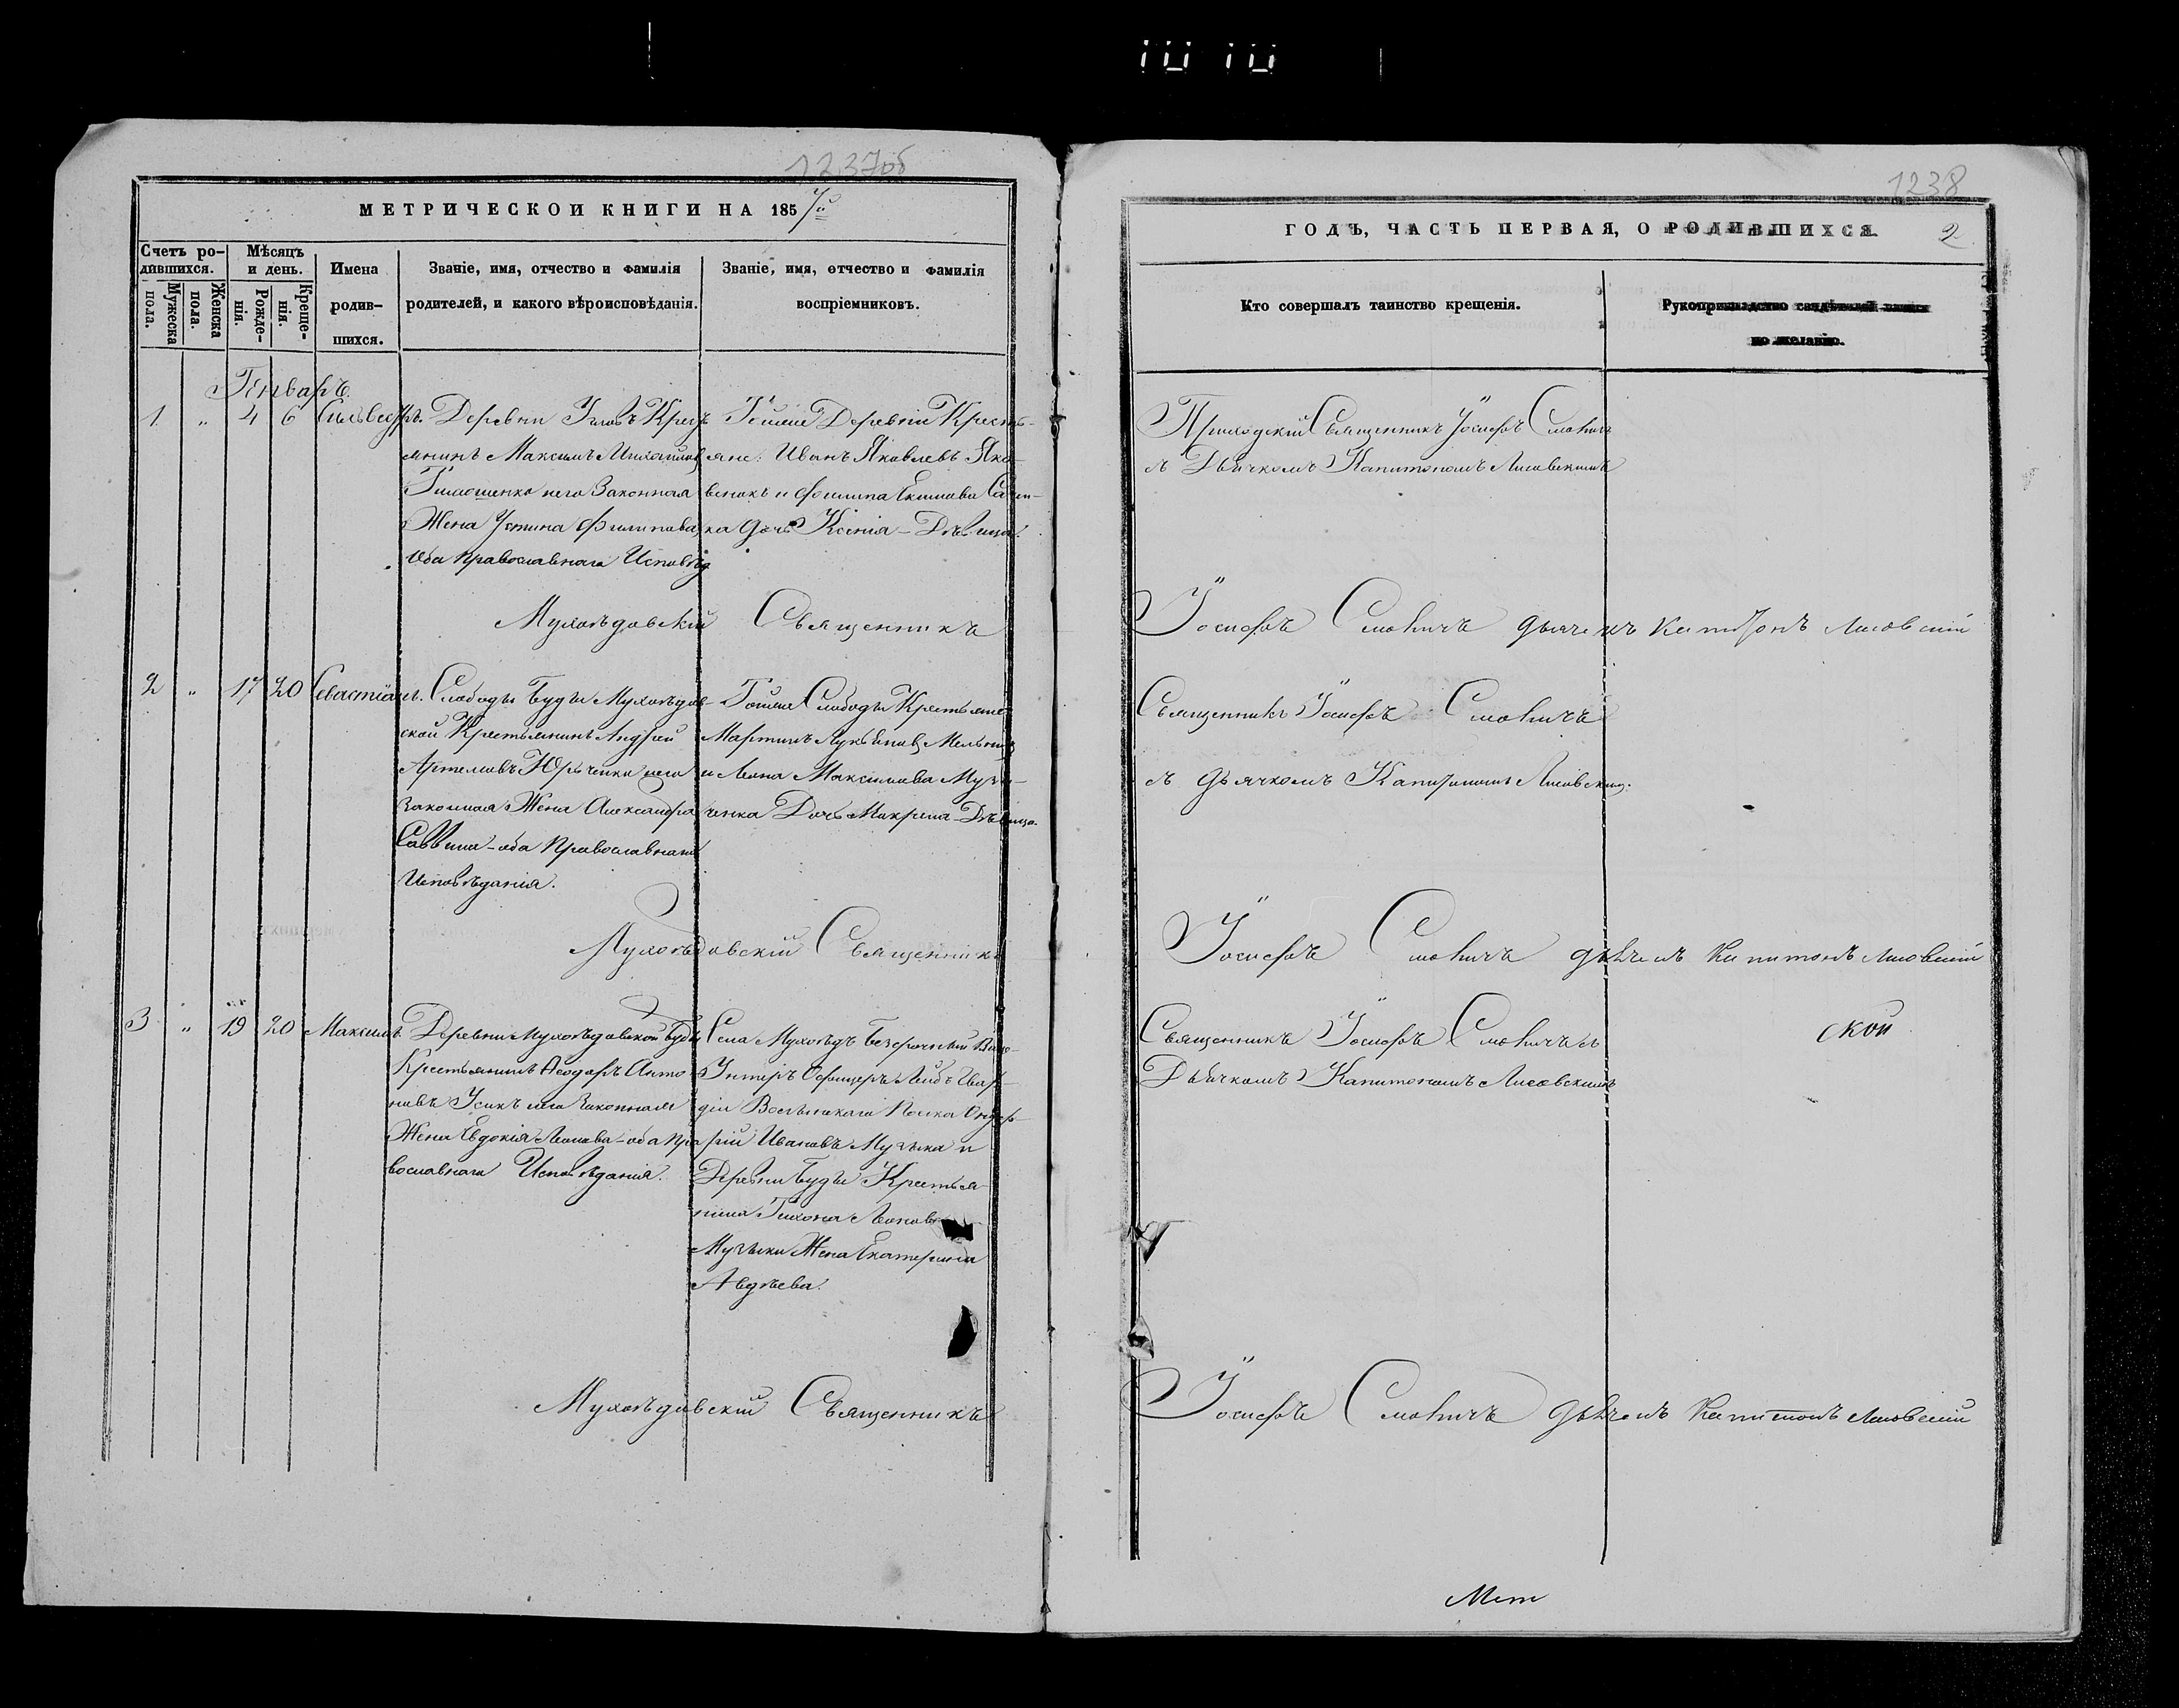 1237об
МЕТРИЧЕСКОЙ КНИГИ НА 1857й
Счетъ ро-
дившихся.
Мѣсяцъ
и день.
Мужеска
пола.
Женска
пола.
Рожде-
нія.
Креще-
нія.
Имена
родив-
шихся.
Званіе, имя, отчество и фамилія
родителей, и какого вѣроисповѣданія.
Званіе, имя, отчество и фамилія
воспріемниковъ.
Генварь
1 " 4 6 Сильвестръ.
Деревни Крестъ
янинъ Максимъ Михайловъ
Тимошенко и его Законная
Жена Устина Филипова,
оба православнаго Исповѣд.
Тойже Деревни Крестъ-
яне: Иванъ Яковлевъ Яко-
венокъ и Екимова
ка дочь Ксенія - Дѣвица.
Мухоѣдовскій Священникъ
2 " 17 20 Севастіянъ.
Слободы Буды Мухоѣдов-
ской Крестьянинъ Андрей
Артемовъ Юрченко и его
законная Жена Александра
Саввина - оба Православнаго
Исповѣданія.
Тойже Слободы Крестьяне
Мартинъ Лукьяновъ Мельник
и Леона Максимова Музы-
ченка Дочь Макрина - Дѣвица.
Мухоѣдовскій Священникъ
3 " 19 20 Максимъ
Деревни Мухоѣдовской Буды
Крестьянинъ Ѳеодоръ Анто-
новъ Усикъ и его Законная
Жена Евдокія Леонова - оба Пра
вославнаго Исповѣданія.
Села Мухоѣдъ Безсрочный
Унтеръ Офицеръ Лейбъ Гвар-
діи Волынскаго Полка
рій Ивановъ Музыка и
Деревни Буды Крестья-
нина Тихона Леонова
Музыки Жена Екатерина
Авдѣева.
Мухоѣдовскій Священникъ
1238
ГОДЪ, ЧАСТЬ ПЕРВАЯ, О РОДИВШИХСЯ.
2
Кто совершалъ таинство крещенія.
Рукоприкладство свидѣтелей записи
по желанію.
Приходскій Священникъ Іосифъ Смоличъ
съ Дьячкомъ Капитономъ Лисовскимъ
Іосифъ Смоличъ дьячекъ Капитонъ Лисовскій
Священникъ Іосифъ Смоличъ
съ дьячкомъ Капитономъ Лисовским.
Іосифъ Смоличъ дьячекъ Капитонъ Лисовскій
Священникъ Іосифъ Смоличъ съ
Дьячкомъ Капитономъ Лисовскимъ
ской
Іосифъ Смоличъ дьячекъ Капитонъ Лисовскій
Мет